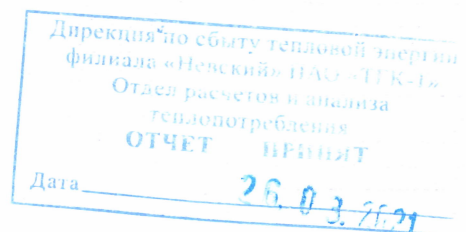 Дирекция по сбыту тепловой энергии
филиала «Невский» ПАО «ТГК-1»
Отдел расчетов и анализа
теплопотребления
ОТЧЕТ ПРИНЯТ
Дата 26.03.2021